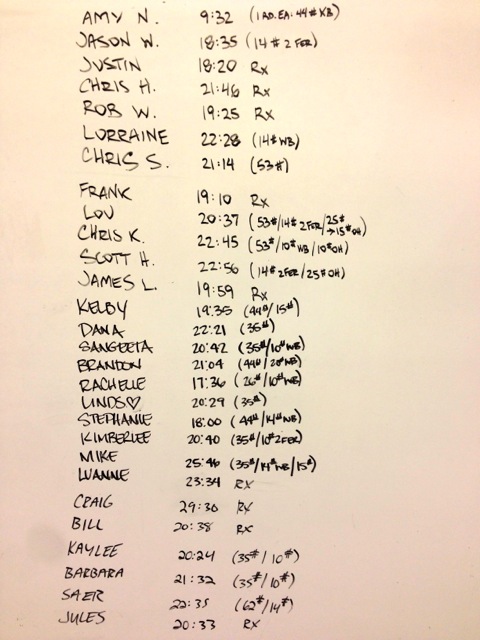 AMY N. 9:32 (1 RD. EA. 44# KB)
JASON W. 18:35 (14# 2FER)
JUSTIN 18:20 Rx
CHRIS H. 21:46 Rx
ROB W. 19:25 Rx
LORRAINE 22:28 (14# WB)
CHRIS S. 21:14 (53#)
FRANK 19:10 Rx
LOU 20:37 (53#/14# 2FER/25# → 15# OH)
CHRIS K. 22:45 (53#/10# WB/10# OH)
SCOTT H. 22:56 (14# 2FER/25# OH)
JAMES L. 19:59 Rx
KELBY 19:35 (44#/15#)
DANA 22:21 (35#)
SANGEETA 20:42 (35#/10# WB)
BRANDON 21:04 (44#/20# WB)
RACHELLE 17:36 (26#/10# WB)
LINDS♡ 20:29 (35#)
STEPHANIE 18:00 (44#/14# WB)
KIMBERLEE 20:40 (35#/10# 2FER)
MIKE 25:46 (35#/14# WB/15#)
LUANNE 23:34 RX
CRAIG 29:30 RX
BILL 20:38 RX
KAYLEE 20:24 (35#/10#)
BARBARA 21:32 (35#/10#)
SAER 22:35 (62#/14#)
JULES 20:33 RX